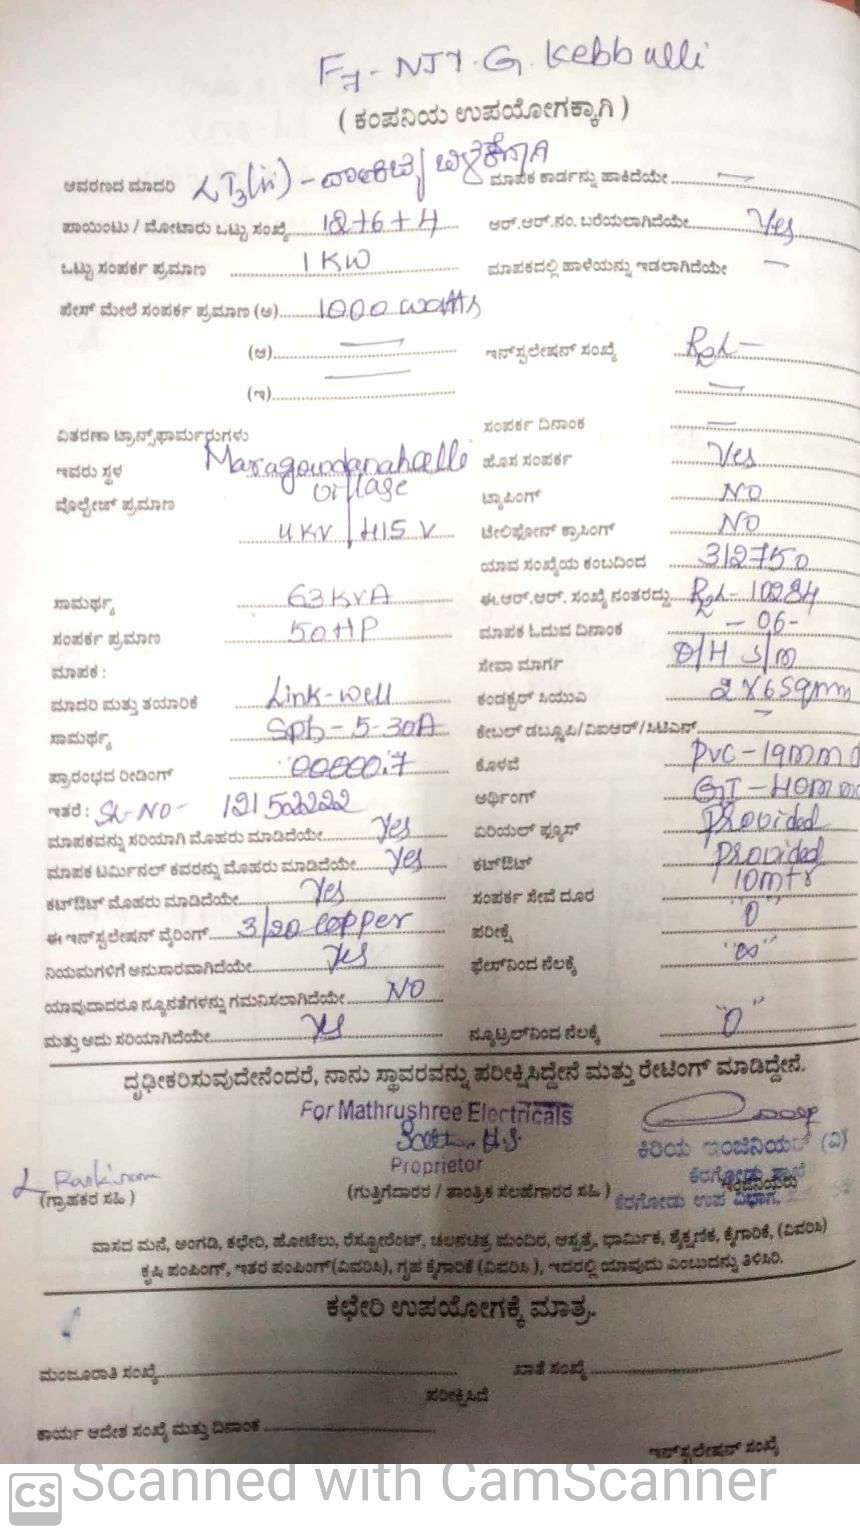 F7 - NJY. G. Kebballi
( ಕಂಪನಿಯ ಉಪಯೋಗಕ್ಕಾಗಿ )
ಆವರಣದ ಮಾದರಿ LT3(ii) - ಮಾಪಕ ಕಾರ್ಡನ್ನು ಹಾಕಿದೆಯೇ —
ಪಾಯಿಂಟು / ಮೋಟಾರು ಒಟ್ಟು ಸಂಖ್ಯೆ 12+6+4 ಆರ್.ಆರ್.ನಂ. ಬರೆಯಲಾಗಿದೆಯೇ Yes
ಒಟ್ಟು ಸಂಪರ್ಕ ಪ್ರಮಾಣ 1 KW ಮಾಪಕದಲ್ಲಿ ಹಾಳೆಯನ್ನು ಇಡಲಾಗಿದೆಯೇ —
ಫೇಸ್ ಮೇಲೆ ಸಂಪರ್ಕ ಪ್ರಮಾಣ (ಅ) 1000 watts
(ಆ) — ಇನ್‌ಸ್ಟಲೇಷನ್ ಸಂಖ್ಯೆ RgL -
(ಇ) — —
ವಿತರಣಾ ಟ್ರಾನ್ಸ್‌ಫಾರ್ಮರುಗಳು ಸಂಪರ್ಕ ದಿನಾಂಕ —
ಇವರು ಸ್ಥಳ Maragoundanahalli village ಹೊಸ ಸಂಪರ್ಕ Yes
ವೋಲ್ಟೇಜ್ ಪ್ರಮಾಣ ಟ್ಯಾಪಿಂಗ್ NO
11KV / 415 V ಟೇಲಿಫೋನ್ ಕ್ರಾಸಿಂಗ್ NO
ಯಾವ ಸಂಖ್ಯೆಯ ಕಂಬದಿಂದ 312750
ಸಾಮರ್ಥ್ಯ 63 KVA ಈ.ಆರ್.ಆರ್. ಸಂಖ್ಯೆ ನಂತರದ್ದು RgL - 10284
ಸಂಪರ್ಕ ಪ್ರಮಾಣ 50 HP ಮಾಪಕ ಓದುವ ದಿನಾಂಕ - 06 -
ಮಾಪಕ : ಸೇವಾ ಮಾರ್ಗ O/H S/m
ಮಾದರಿ ಮತ್ತು ತಯಾರಿಕೆ Link-well ಕಂಡಕ್ಟರ್ ಸಿಯುಎ 2X6 Sqmm
ಸಾಮರ್ಥ್ಯ Sph - 5-30A ಕೇಬಲ್ ಡಬ್ಲೂಪಿ/ವಿಐಆರ್/ಸಿಟಿಎಸ್ —
ಪ್ರಾರಂಭದ ರೀಡಿಂಗ್ 00000.7 ಕೊಳವೆ PVC - 19mm
ಇತರೆ : SL-NO - 121 502222 ಅರ್ಥಿಂಗ್ GI - 40mm
ಮಾಪಕವನ್ನು ಸರಿಯಾಗಿ ಮೊಹರು ಮಾಡಿದೆಯೇ Yes ಏರಿಯಲ್ ಫ್ಯೂಸ್ Provided
ಮಾಪಕ ಟರ್ಮಿನಲ್ ಕವರನ್ನು ಮೊಹರು ಮಾಡಿದೆಯೇ Yes ಕಟ್‌ಔಟ್ Provided
ಕಟ್‌ಔಟ್ ಮೊಹರು ಮಾಡಿದೆಯೇ Yes ಸಂಪರ್ಕ ಸೇವೆ ದೂರ 10mtr
ಈ ಇನ್‌ಸ್ಟಲೇಷನ್ ವೈರಿಂಗ್ 3/20 copper ಪರೀಕ್ಷೆ "0"
ನಿಯಮಗಳಿಗೆ ಅನುಸಾರವಾಗಿದೆಯೇ Yes ಫೇಸ್‌ನಿಂದ ನೆಲಕ್ಕೆ "∞"
ಯಾವುದಾದರೂ ನ್ಯೂನತೆಗಳನ್ನು ಗಮನಿಸಲಾಗಿದೆಯೇ NO
ಮತ್ತು ಅದು ಸರಿಯಾಗಿದೆಯೇ Yes ನ್ಯೂಟ್ರಲ್‌ನಿಂದ ನೆಲಕ್ಕೆ "0"
ದೃಢೀಕರಿಸುವುದೇನೆಂದರೆ, ನಾನು ಸ್ಥಾವರವನ್ನು ಪರೀಕ್ಷಿಸಿದ್ದೇನೆ ಮತ್ತು ರೇಟಿಂಗ್ ಮಾಡಿದ್ದೇನೆ.
For Mathrushree Electricals
ಕಿರಿಯ ಇಂಜಿನಿಯರ್ (ವಿ)
Proprietor
ಕೆರಗೋಡು ಶಾಖೆ
ಇಂಜಿನಿಯರು
(ಗ್ರಾಹಕರ ಸಹಿ ) (ಗುತ್ತಿಗೆದಾರರ / ತಾಂತ್ರಿಕ ಸಲಹೆಗಾರರ ಸಹಿ ) ಕೆರಗೋಡು ಉಪ ವಿಭಾಗ.
ವಾಸದ ಮನೆ, ಅಂಗಡಿ, ಕಛೇರಿ, ಹೋಟೆಲು, ರೆಸ್ಟೋರೆಂಟ್, ಚಲನಚಿತ್ರ ಮಂದಿರ, ಆಸ್ಪತ್ರೆ, ಧಾರ್ಮಿಕ, ಶೈಕ್ಷಣಿಕ, ಕೈಗಾರಿಕೆ, (ವಿವರಿಸಿ)
ಕೃಷಿ ಪಂಪಿಂಗ್, ಇತರ ಪಂಪಿಂಗ್(ವಿವರಿಸಿ), ಗೃಹ ಕೈಗಾರಿಕೆ (ವಿವರಿಸಿ ), ಇದರಲ್ಲಿ ಯಾವುದು ಎಂಬುದನ್ನು ತಿಳಿಸಿರಿ.
ಕಛೇರಿ ಉಪಯೋಗಕ್ಕೆ ಮಾತ್ರ.
ಮಂಜೂರಾತಿ ಸಂಖ್ಯೆ ಖಾತೆ ಸಂಖ್ಯೆ
ಪರೀಕ್ಷಿಸಿದೆ
ಕಾರ್ಯ ಆದೇಶ ಸಂಖ್ಯೆ ಮತ್ತು ದಿನಾಂಕ
ಇನ್‌ಸ್ಟಲೇಷನ್ ಸಂಖ್ಯೆ
CS Scanned with CamScanner